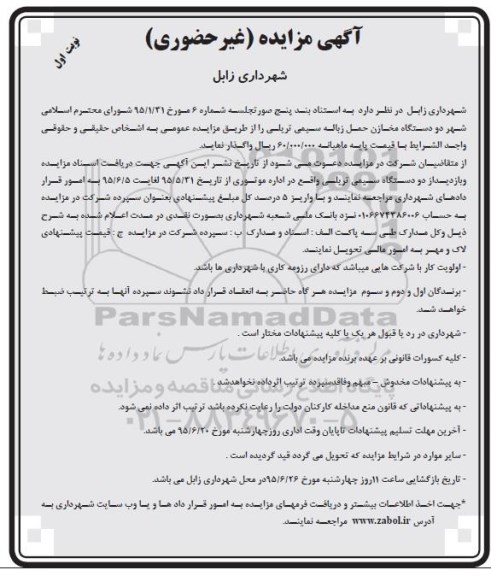 آگهی مزایده (غیرحضوری)
نوبت اول
شهرداری زابل
شهرداری زابل در نظر دارد به استناد بند پنج صورتجلسه شماره ۶ مورخ ۹۵/۱/۳۱ شورای محترم اسلامی
شهر دو دستگاه مخازن حمل زباله سیمی تریلی را از طریق مزایده عمومی به اشخاص حقیقی و حقوقی
واجد الشرایط با قیمت پایه ماهیانه ۶۰/۰۰۰/۰۰۰ ریال واگذار نماید.
از متقاضیان شرکت در مزایده دعوت می شود از تاریخ نشر این آگهی جهت دریافت اسناد مزایده
وبازدیداز دو دستگاه سیمی تریلی واقع در اداره موتوری از تاریخ ۹۵/۵/۳۱ لغایت ۹۵/۶/۵ به امور قرار
دادهای شهرداری مراجعه نمایند و با واریز ۵ درصد کل مبلغ پیشنهادی بعنوان سپرده شرکت در مزایده
به حساب ۰۱۰۶۶۷۴۳۸۶۰۰۶ نزد بانک ملی شعبه شهرداری بصورت نقدی در مدت اعلام شده به شرح
ذیل وکل مدارک طی سه پاکت الف : اسناد و مدارک ب : سپرده شرکت در مزایده ج : قیمت پیشنهادی
لاک و مهر به امور مالی تحویل نمایند.
- اولویت کار با شرکت هایی میباشد که دارای رزومه کاری با شهرداری ها باشد.
- برندگان اول و دوم و سوم مزایده هر گاه حاضر به انعقاد قرار داد نشوند سپرده آنها به ترتیب ضبط
خواهد شد.
- شهرداری در رد یا قبول هر یک یا کلیه پیشنهادات مختار است .
- کلیه کسورات قانونی بر عهده برنده مزایده می باشد.
- به پیشنهادات مخدوش – مبهم وفاقدسپرده ترتیب اثرداده نخواهدشد.
- به پیشنهاداتی که قانون منع مداخله کارکنان دولت را رعایت نکرده باشد ترتیب اثر داده نمی شود.
- آخرین مهلت تسلیم پیشنهادات تاپایان وقت اداری روزچهارشنبه مورخ ۹۵/۶/۲۰ می باشد.
- سایر موارد در شرایط مزایده که تحویل می گردد قید گردیده است .
- تاریخ بازگشایی ساعت ۱۱روز چهارشنبه مورخ ۹۵/۶/۲۶در محل شهرداری زابل می باشد.
*جهت اخذ اطلاعات بیشتر و دریافت فرمهای مزایده به امور قرار داد ها و یا وب سایت شهرداری به
آدرس www.zabol.ir مراجعه نمایند.
ParsNamadData
پایگاه اطلاع رسانی مناقصه و مزایده
۰۲۱-۸۸۳۴۹۶۷۰-۵